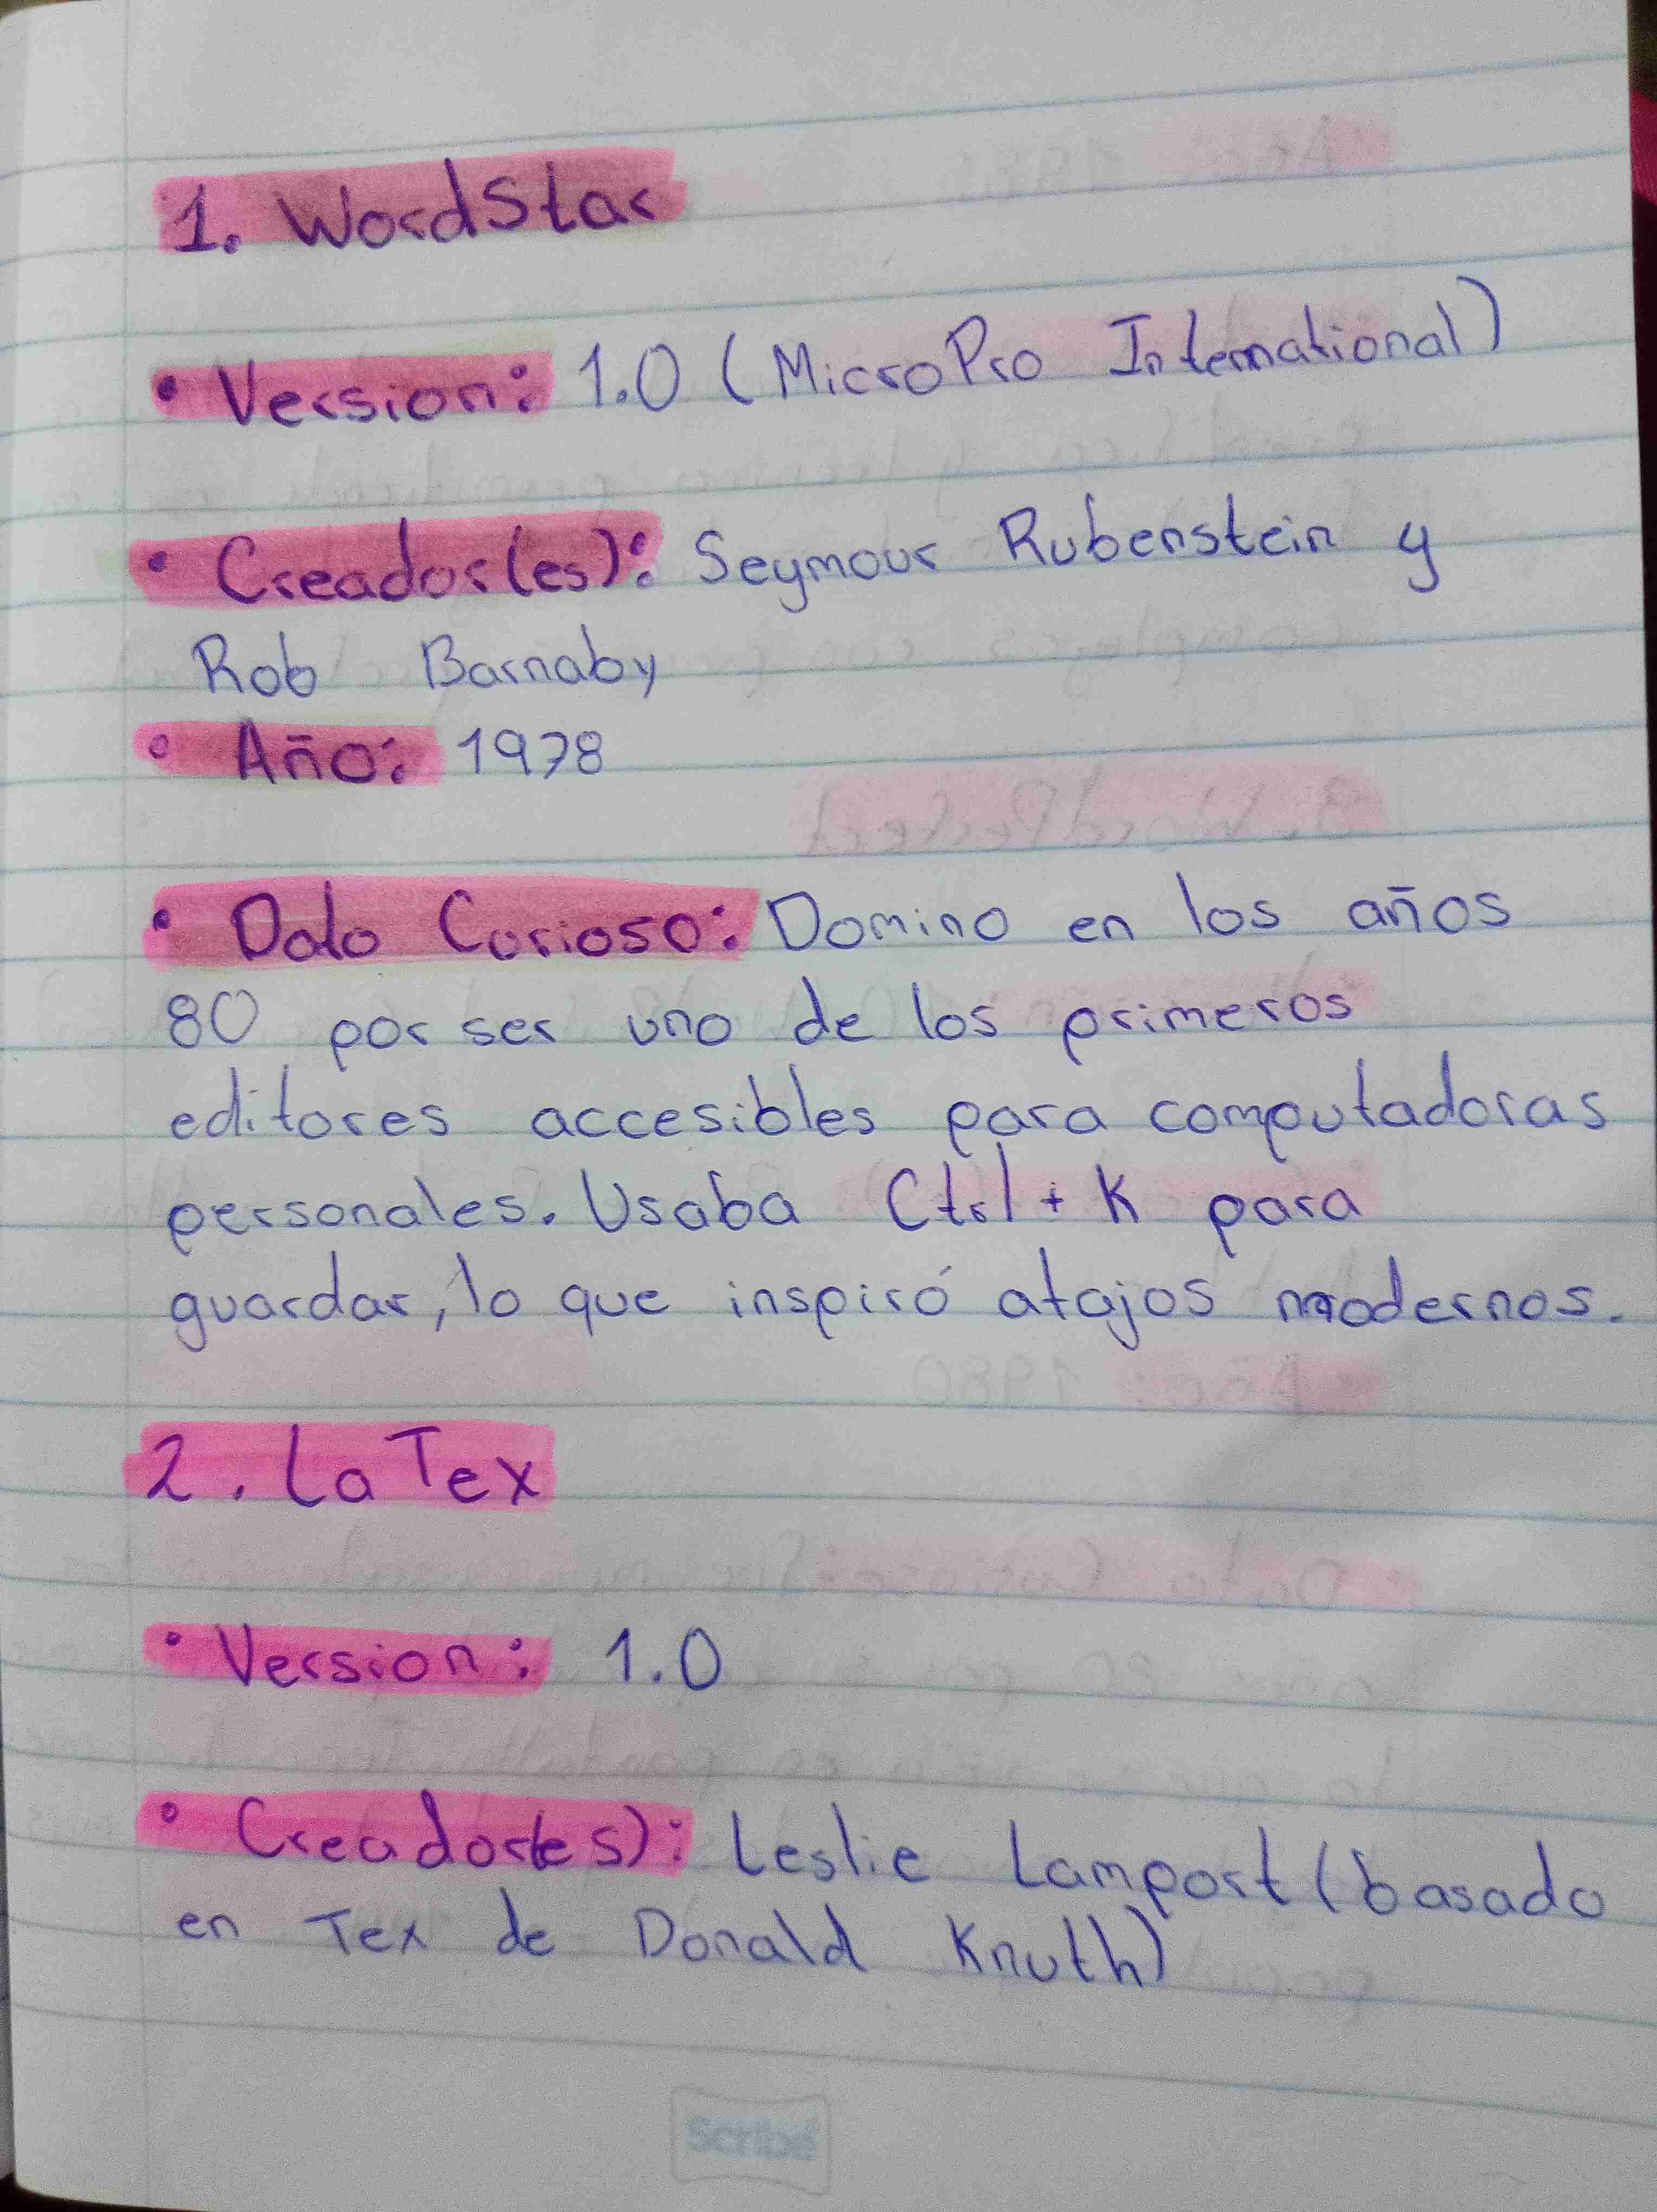 1. WordStar
• Version: 1.0 (MicroPro International)
• Creador(es): Seymour Rubenstein y
Rob Barnaby
• Año: 1978
• Dato Curioso: Domino en los años
80 por ser uno de los primeros
editores accesibles para computadoras
personales. Usaba Ctrl + K para
guardar, lo que inspiró atajos modernos.
2. LaTex
• Version: 1.0
• Creador(es): Leslie Lamport (basado
en Tex de Donald Knuth)
Scribe